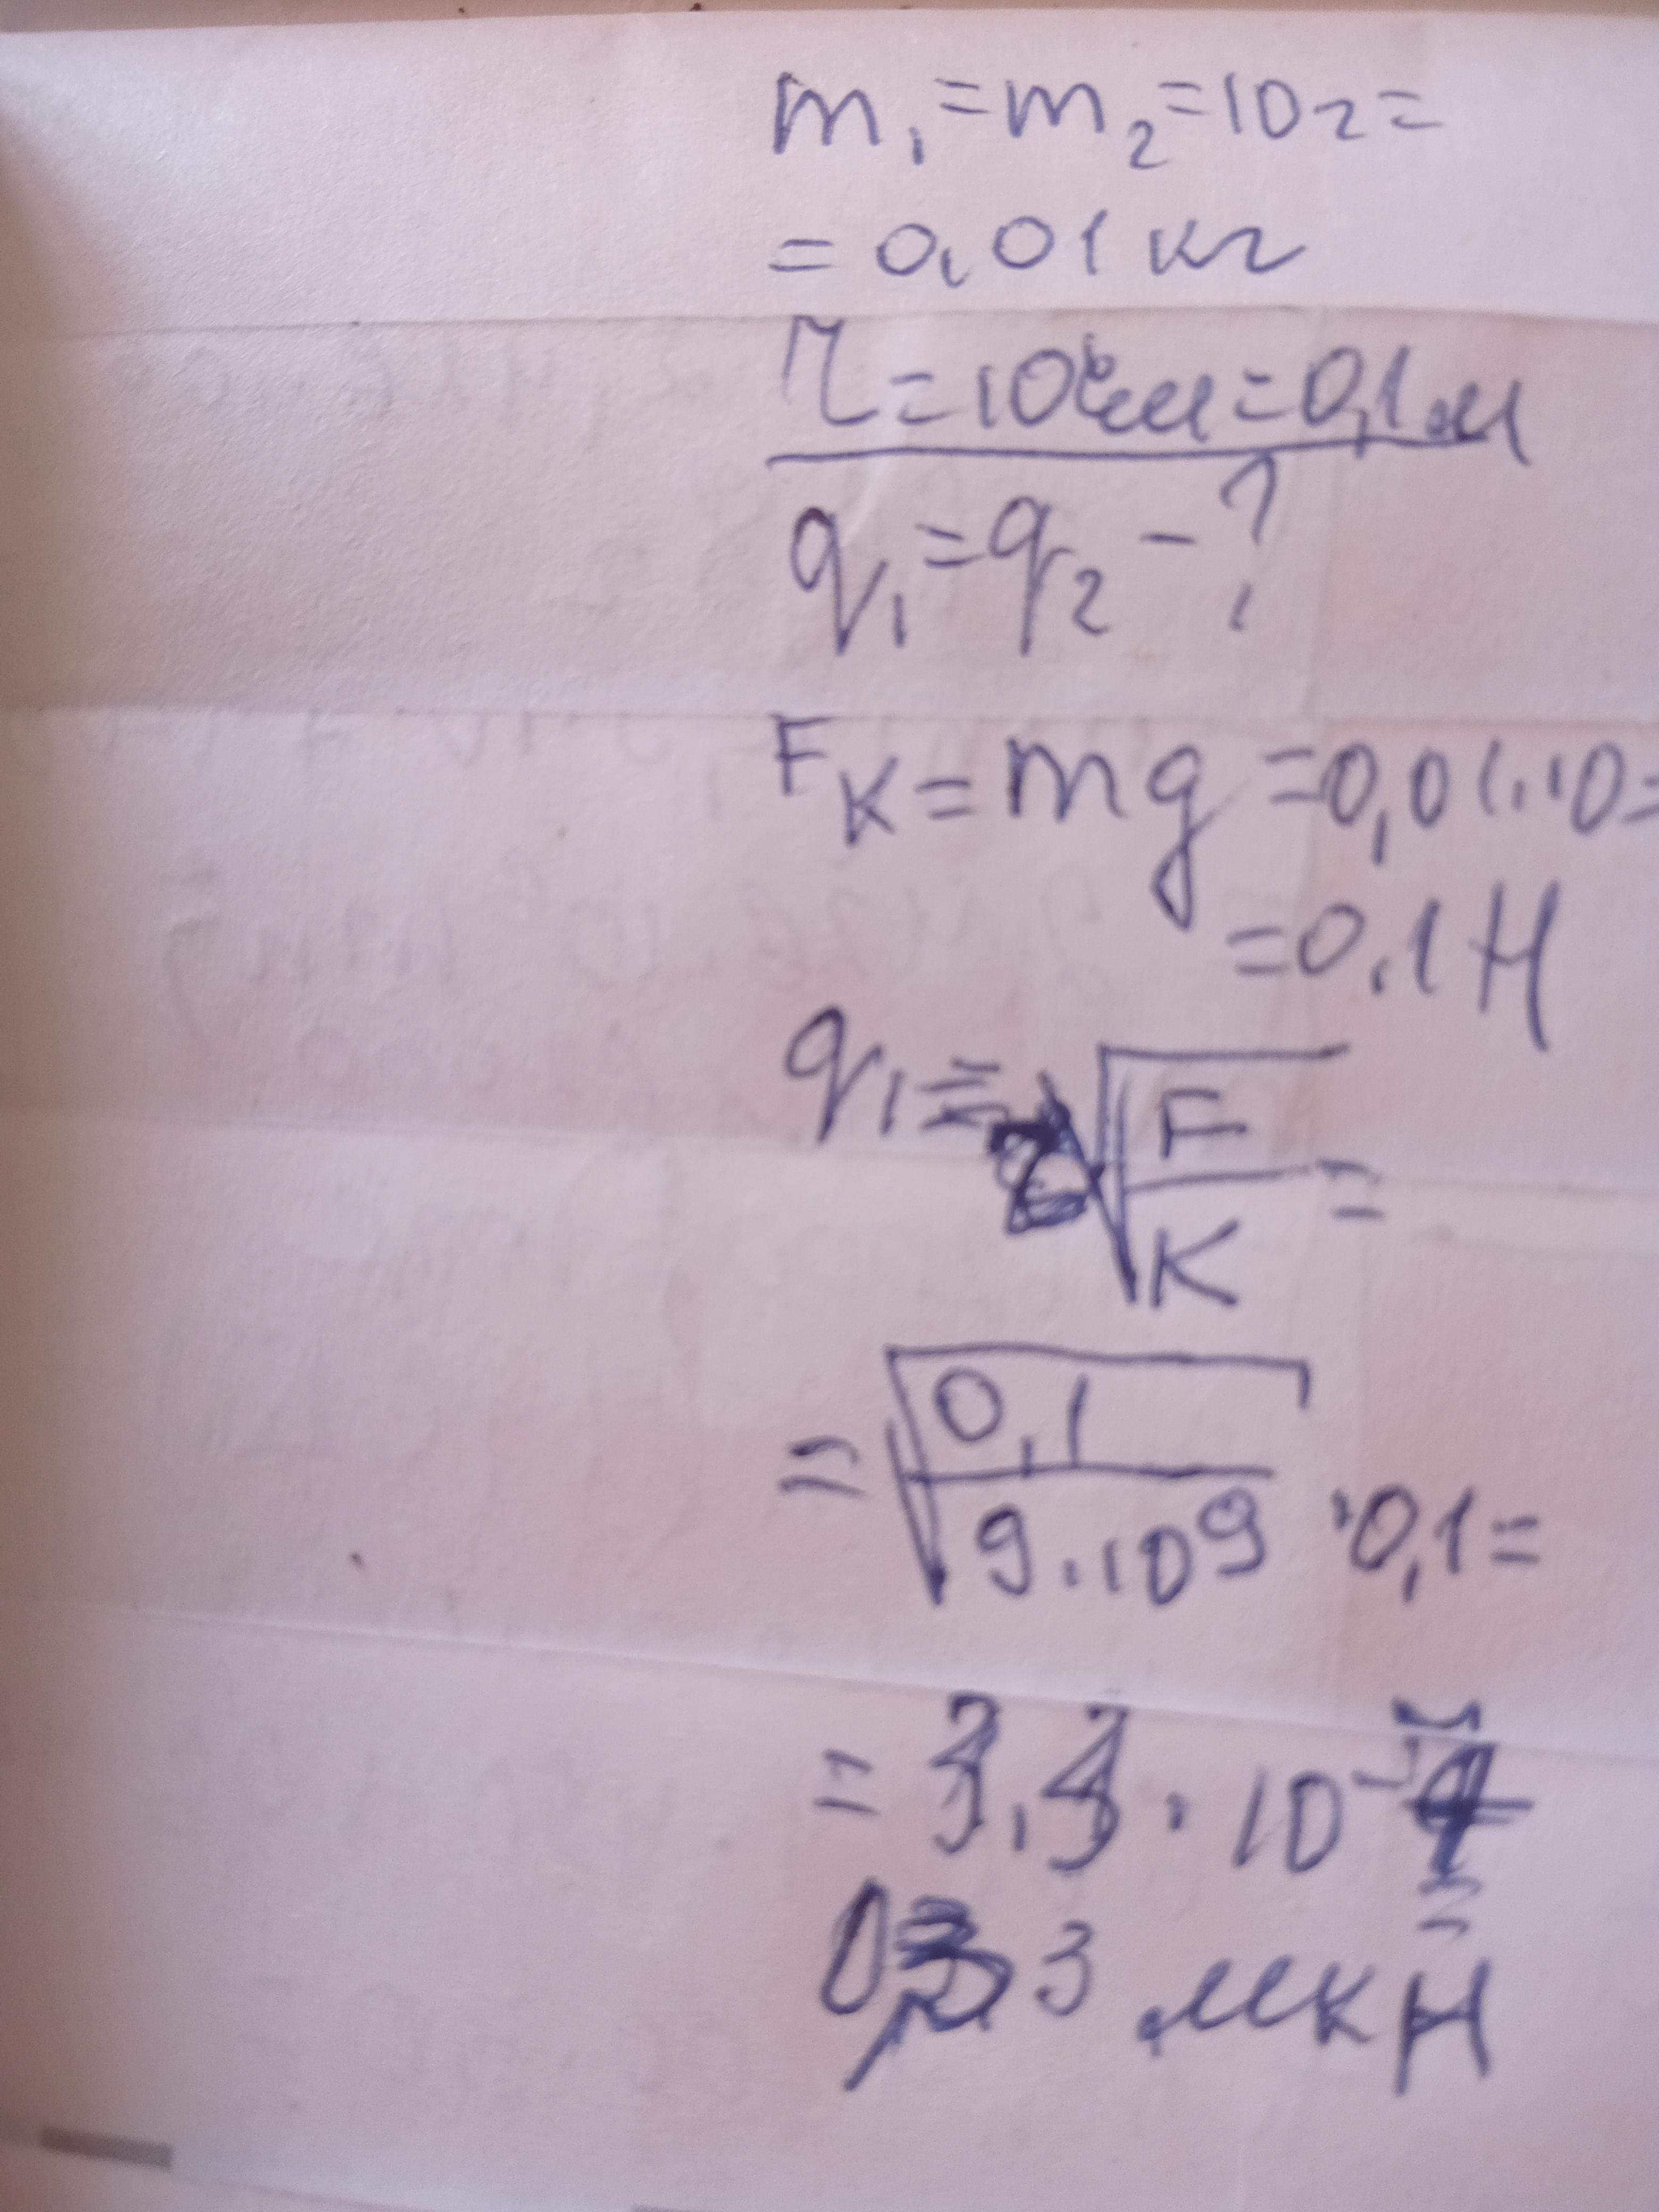 m₁ = m₂ = 10г =
= 0,01 кг
r = 10см = 0,1 м
q₁ = q₂ - ?
Fк = mg = 0,01·10 =
= 0,1 Н
q₁ = r√(F/K) =
= √(0,1/9·10⁹) · 0,1 =
= 3,3 · 10⁻⁷
0,33 мкН